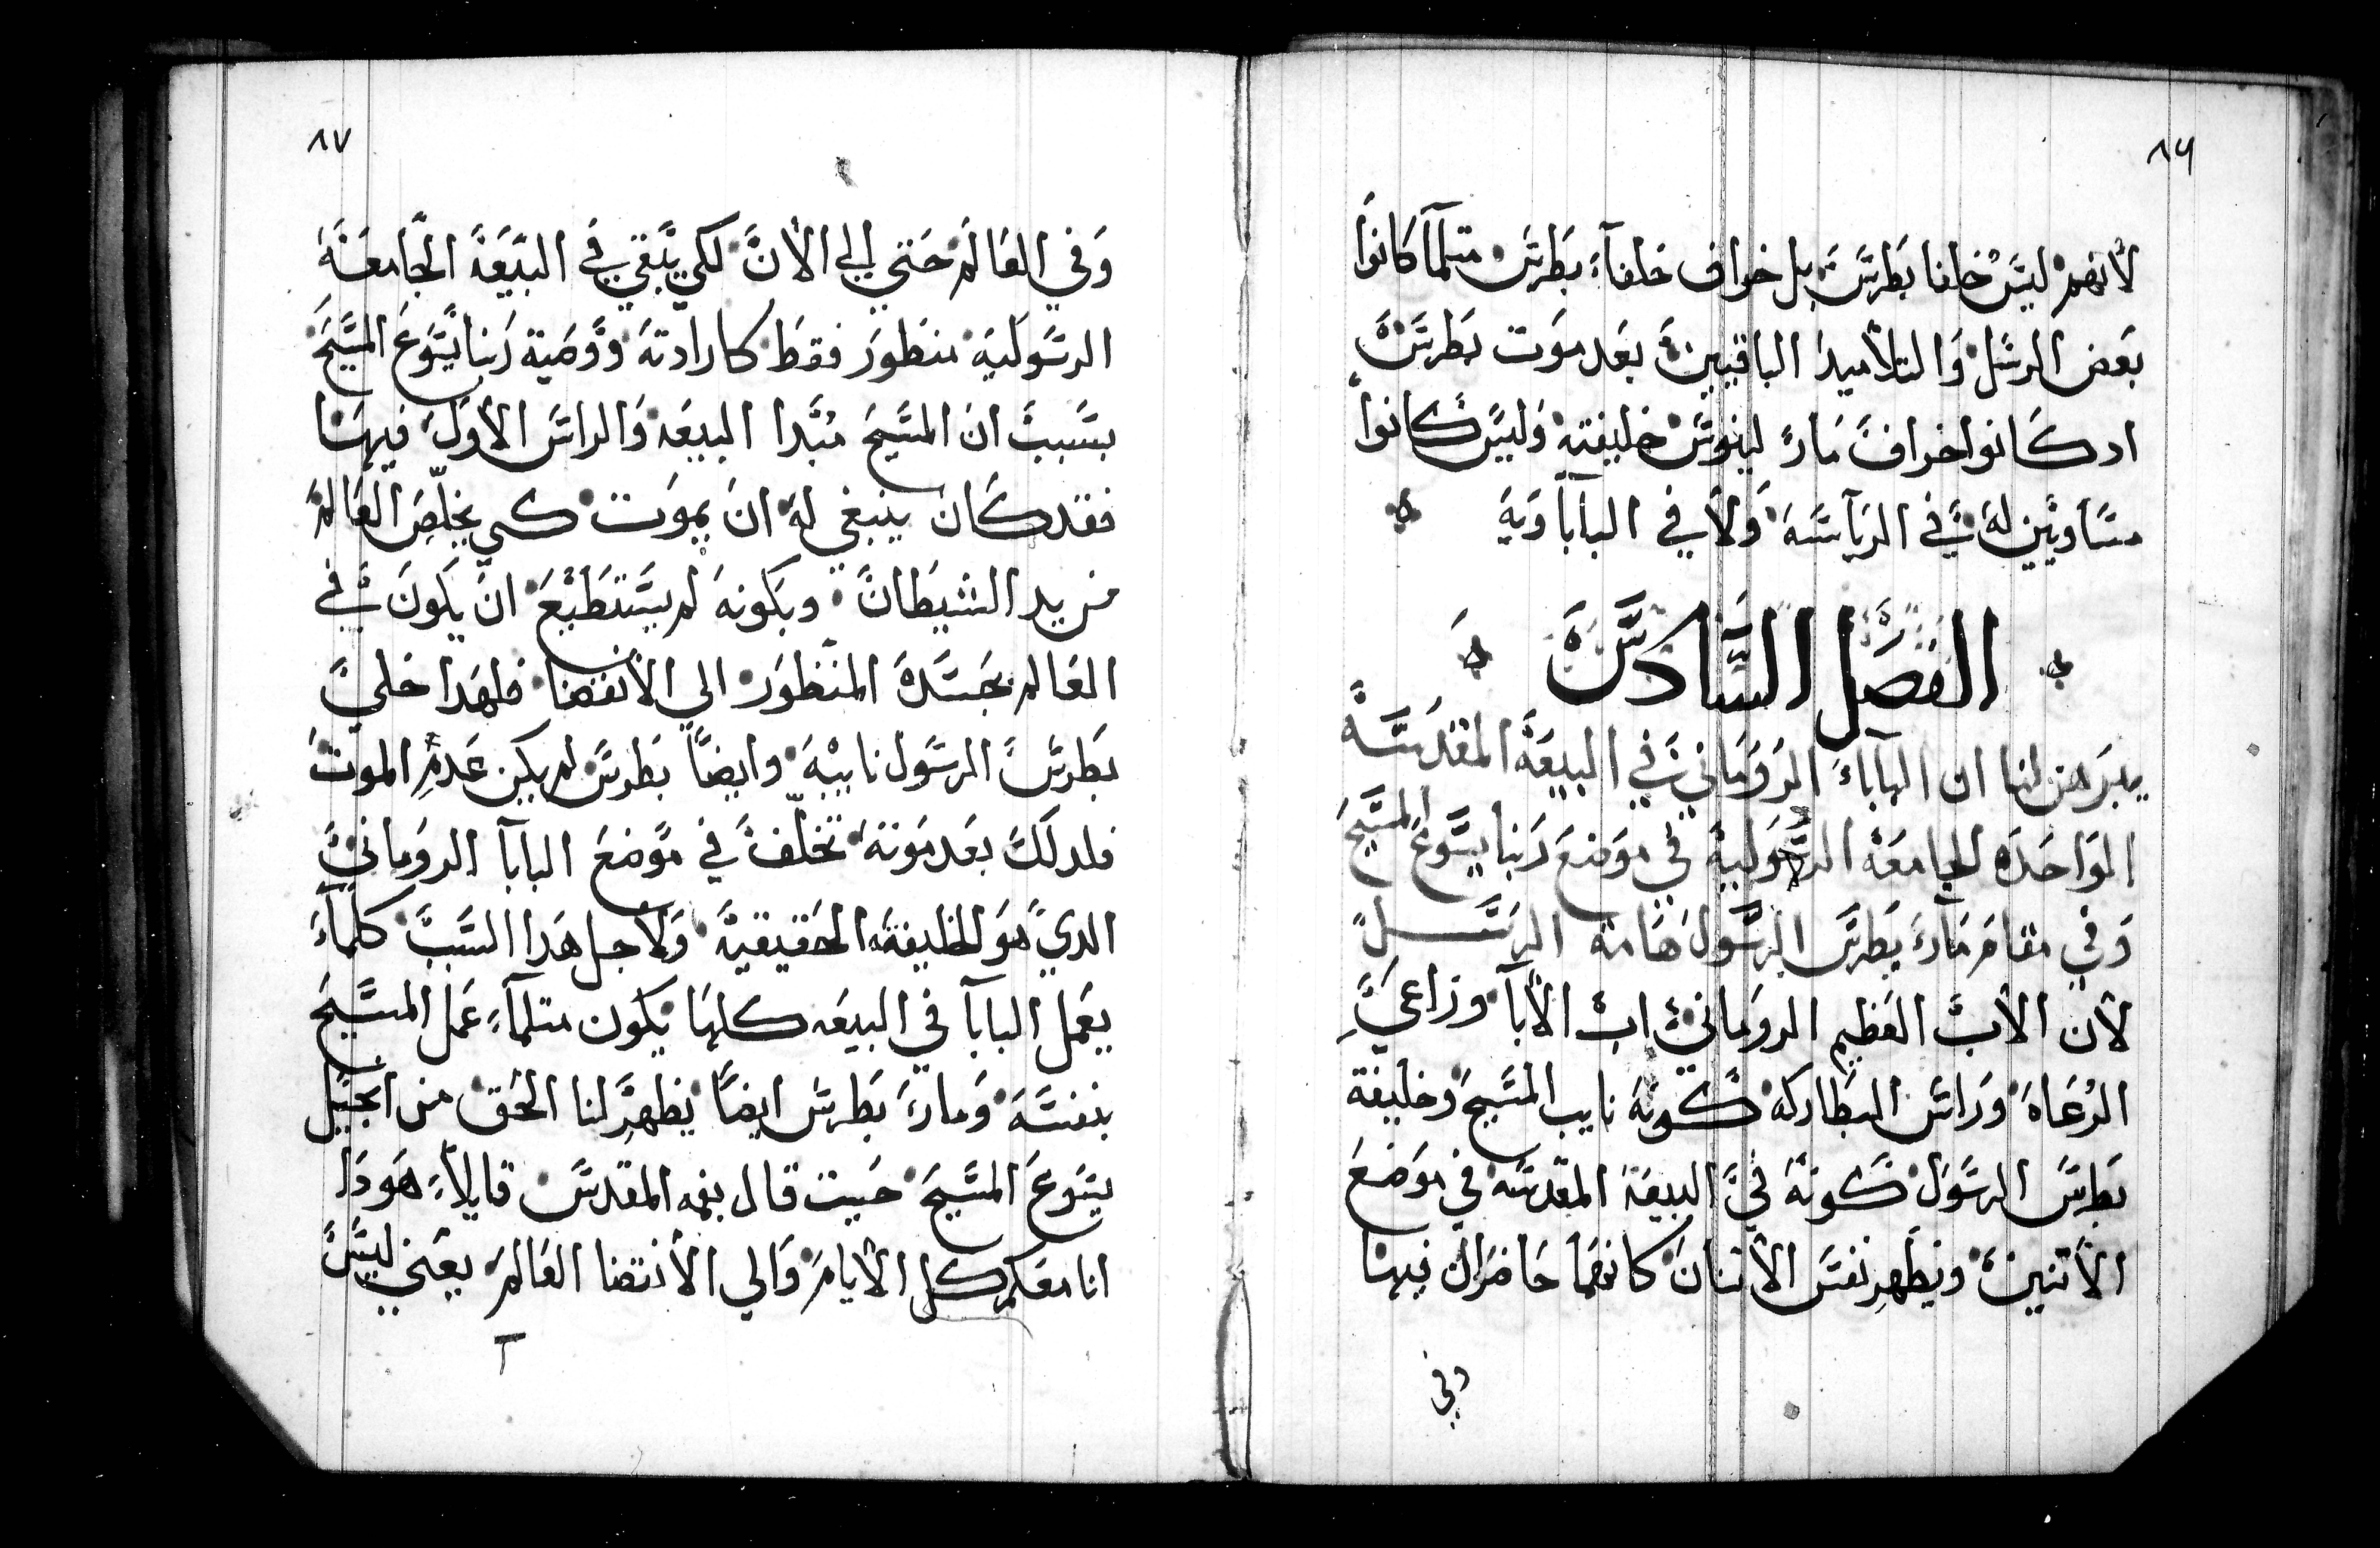 ٨٦
لأنهم ليس خلفا بطرس بل خراف خلفآء بطرس متلمآ كانوا
بعض الرسل والتلأميد الباقيين بعد موت بطرس
اد كانوا خراف مارى لينوس خليفته وليس كانوا
مساويين له في الريآسه ولأ في البآبآويه
الفصل السادس
يبرهن لنا ان الباباء الروماني في البيعه المقدسه
الواحده الجامعه الرسوليه في موضع ربنا يسوع المسيح
وفي مقام مارى بطرس الرسول هامة الرسل
لأن الأب العظيم الروماني اب الأبآ وراعي
الرعاه وراس البطاركه كونه نايب المسيح وخليفة
بطرس الرسول كونه في البيعه المقدسه في موضع
الأتنين ويظهر نفس الأتنان كانهما حاضران فيها
وفي
٨٧
وفي العالم حتي الي الأن لكي يبقي في البيعه الجامعه
الرسوليه منظور فقط كارادته ووصية ربنا يسوع المسيح
بسبب ان المسيح مبدا البيعه والراس الأول فيها
فقد كان ينبغي له ان يموت كي يخلص العالم
من يد الشيطان وبكونه لم يستطيع ان يكون في
العالم بجسده المنظور الي الأنقضا فلهدا خلي
بطرس الرسول نايبه وايضا بطرس لم يكن عدم الموت
فلدلك بعد موته تخلف في موضع البابآ الروماني
الدي هو الخليفه الحقيقيه ولاجل هدا السبب كلمآء
يعمل البابآ في البيعه كلها يكون متلمآء عمل المسيح
بنفسه ومارى بطرس ايضا يظهر لنا الحق من انجيل
يسوع المسيح حيت قال بفمه المقدس قايلأ هو دا
انا معكم كل الأيام والي الأنتضا العالم يعني ليس